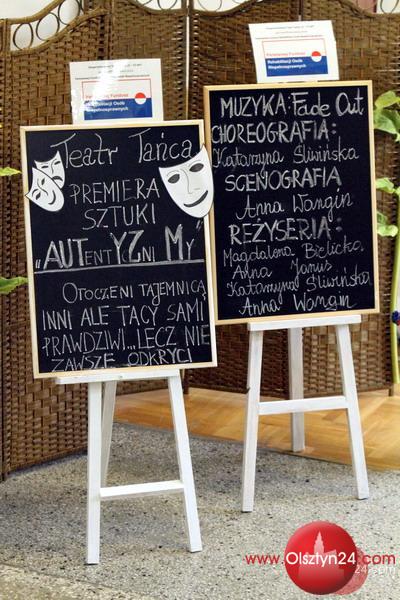 Państwowy Fundusz
Rehabilitacji Osób
Niepełnosprawnych
Teatr Tańca
PREMIERA
SZTUKI
"AUTentYZNi My"
OTOCZENI TAJEMNICĄ
INNI ALE TACY SAMI
PRAWDZIWI...LECZ NIE
ZAWSZE ODKRYCI
Państwowy Fundusz
Rehabilitacji Osób
Niepełnosprawnych
MUZYKA: Fade Out
CHOREOGRAFIA:
Katarzyna Śliwińska
SCENOGRAFIA
Anna Wangin
REŻYSERIA:
Magdalena Bielicka
Anna Janus
Katarzyna Śliwińska
Anna Wangin
www.Olsztyn24.com
24.com